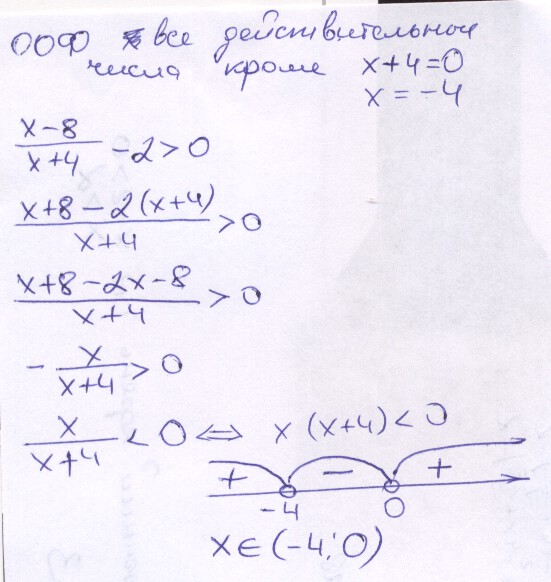 ООФ все действительные
числа кроме x+4=0
x = -4
x-8/x+4 - 2 > 0
x+8-2(x+4)/x+4 > 0
x+8-2x-8/x+4 > 0
- x/x+4 > 0
x/x+4 < 0 ⇔ x (x+4) < 0
+ - +
-4 0
x∈(-4; 0)